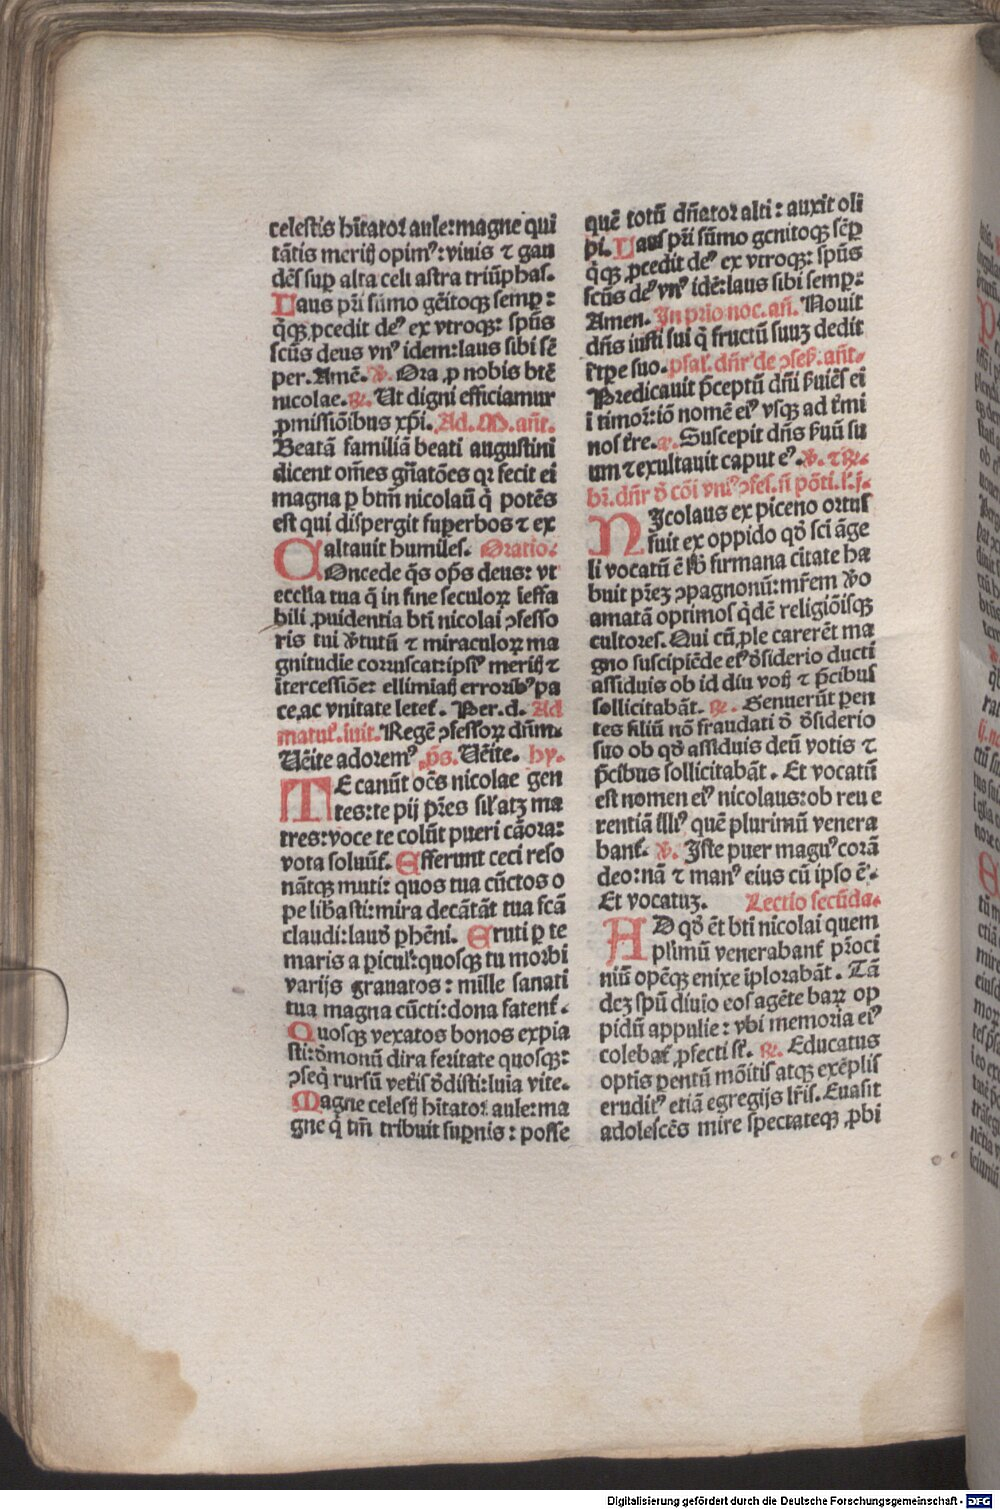 celestis hītator aule: magne qui
tātis meritꝭ opimꝰ: viuis ⁊ gau
dēs suꝑ alta celi astra triūphas.
Laus pr̄i sūmo gēitoqꝫ semꝑ:
q̄qꝫ ꝓcedit deꝰ ex vtroqꝫ: spūs
scūs deus vnꝰ idem: laus sibi sē
per. Amē. ℣. Ora ꝓ nobis btē
nicolae. ℟. Ut digni efficiamur
ꝓmissiōibus xp̄i. Ad. M. an̄t.
Beatā familiā beati augustini
dicent om̄es gn̄atōes qꝛ fecit ei
magna ꝑ btm̄ nicolaū q̄ potēs
est qui dispergit superbos ⁊ ex
altauit humiles. Oratio.
COncede q̄s op̄s deus: vt
ecclīa tua q̄ in fine seculoꝝ ineffa
bili ꝓuidentia bti nicolai ↄfesso
ris tui v̓tutū ⁊ miraculoꝝ ma
gnitudīe corruscat: ipsiꝰ meritꝭ ⁊
ītercessiōe: ellimiatꝭ erroribꝰ pa
ce, ac vnitate letet᷑. Per. d. Ad
matut᷑. īuit. Regē ↄfessoꝝ dn̄m.
Uēite adoremꝰ. p̄s. Uēite. hy.
TE canūt oēs nicolae gen
tes: te pij pr̄es sil᷑ atqꝫ ma
tres: voce te colūt pueri cāora:
vota soluūt᷑. Efferunt ceci reso
nātqꝫ muti: quos tua cūctos o
pe libasti: mira decātāt tua scā
claudi: laud̓ ꝑhēni. Eruti ꝑ te
maris a ꝑicul᷑: quosqꝫ tu morbi
varijs grauatos: mille sanati
tua magna cūcti: dona fatent᷑.
Quosqꝫ vexatos bonos expia
sti: d̓monū dira feritate quosqꝫ:
ↄseq̄ rursū vet̓is d̓disti: luīa vite.
Magne celestꝭ hītator aule: ma
gne q̄ tm̄ tribuit suꝑnis: posse
quē totū dn̄ator alti: auxit oli
pi. Laus pr̄i sūmo genitoqꝫ sēꝑ
q̄qꝫ ꝓcedit deꝰ ex vtroqꝫ: spūs
scūs deꝰ vnꝰ idē: laus sibi semꝑ:
Amen. In prīo noc. an̄. Nouit
dn̄s iusti sui q̄ fructū suuꝫ dedit
ī tꝑe suo. psal᷑. dn̄r de ↄfes. an̄t.
Predicauit p̄ceptū dn̄i ẜuiēs ei
ī timor̄: iō nomē eiꝰ vsqꝫ ad t̓mi
nos t̓re. a᷑. Suscepit dn̄s ẜuū su
um ⁊ exultauit caput eꝰ. ℣. ⁊ ℟.
hr̄. dn̄r d̓ cōi vniꝰ ↄfes. nī pōti. l᷑. j.
NIcolaus ex piceno ortus
fuit ex oppido qd̓ sci āge
li vocatū ē sb̓ firmana citate ha
buit pr̄eꝫ ↄpagnonū: mr̄em v̓o
amatā optimos q̄dē religiōisqꝫ
cultores. Qui cū ꝓle carerēt ma
gno suscipiēde eiꝰ d̓siderio ducti
assiduis ob id diu votꝭ ⁊ p̄cibus
sollicitabāt. ℟. Genuerūt ꝑen
tes filiū nō fraudati d̓ d̓siderio
suo ob qd̓ assiduis deū votis ⁊
p̄cibus sollicitabāt. Et vocatū
est nomen eiꝰ nicolaus: ob reue
rentiā illiꝰ quē plurimū venera
bant᷑. ℣. Iste puer magnꝰ corā
deo: nā ⁊ manꝰ eius cū ipso ē.
Et vocatuꝫ. Lectio secūda.
AD qd̓ ēt bti nicolai quem
pl̓imū venerabant᷑ pr̄oci
niū opēqꝫ enixe īplorabāt. Tā
deꝫ spū diuīo eos agēte baꝝ op
pidū appulie: vbi memoria eiꝰ
colebat᷑ ꝓfecti st̄. ℟. Educatus
optīs ꝑentū mōitis atqꝫ exēplis
eruditꝰ etiā egregijs lr̄is. Euasit
adolescēs mire spectateqꝫ ꝓbi